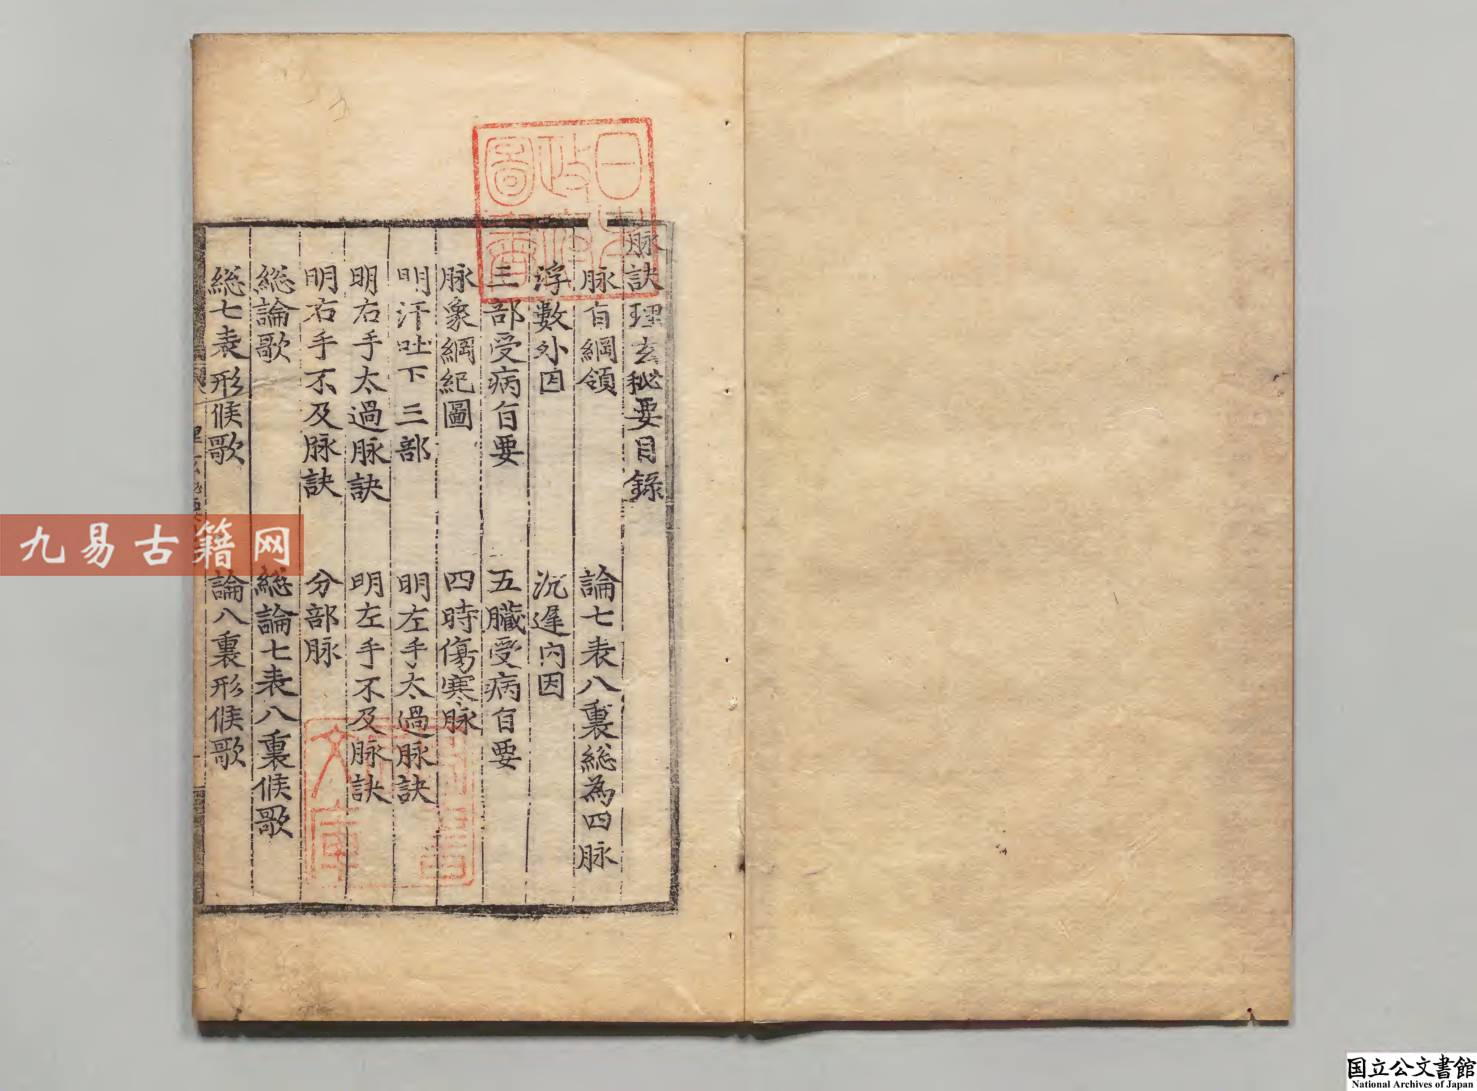 脉訣理玄秘要目錄
脉有綱領 論七表八裏総為四脉
浮數外因 沉遲內因
三部受病自要 五臟受病自要
脉象綱紀圖 四時傷寒脉
明汗吐下三部 明左手太過脉訣
明右手太過脉訣 明左手不及脉訣
明右手不及脉訣 分部脉
総論歌 総論七表八裏候歌
総七表形候歌 論八裏形候歌
日本政府圖書
文庫
九易古籍网
国立公文書館
National Archives of Japan